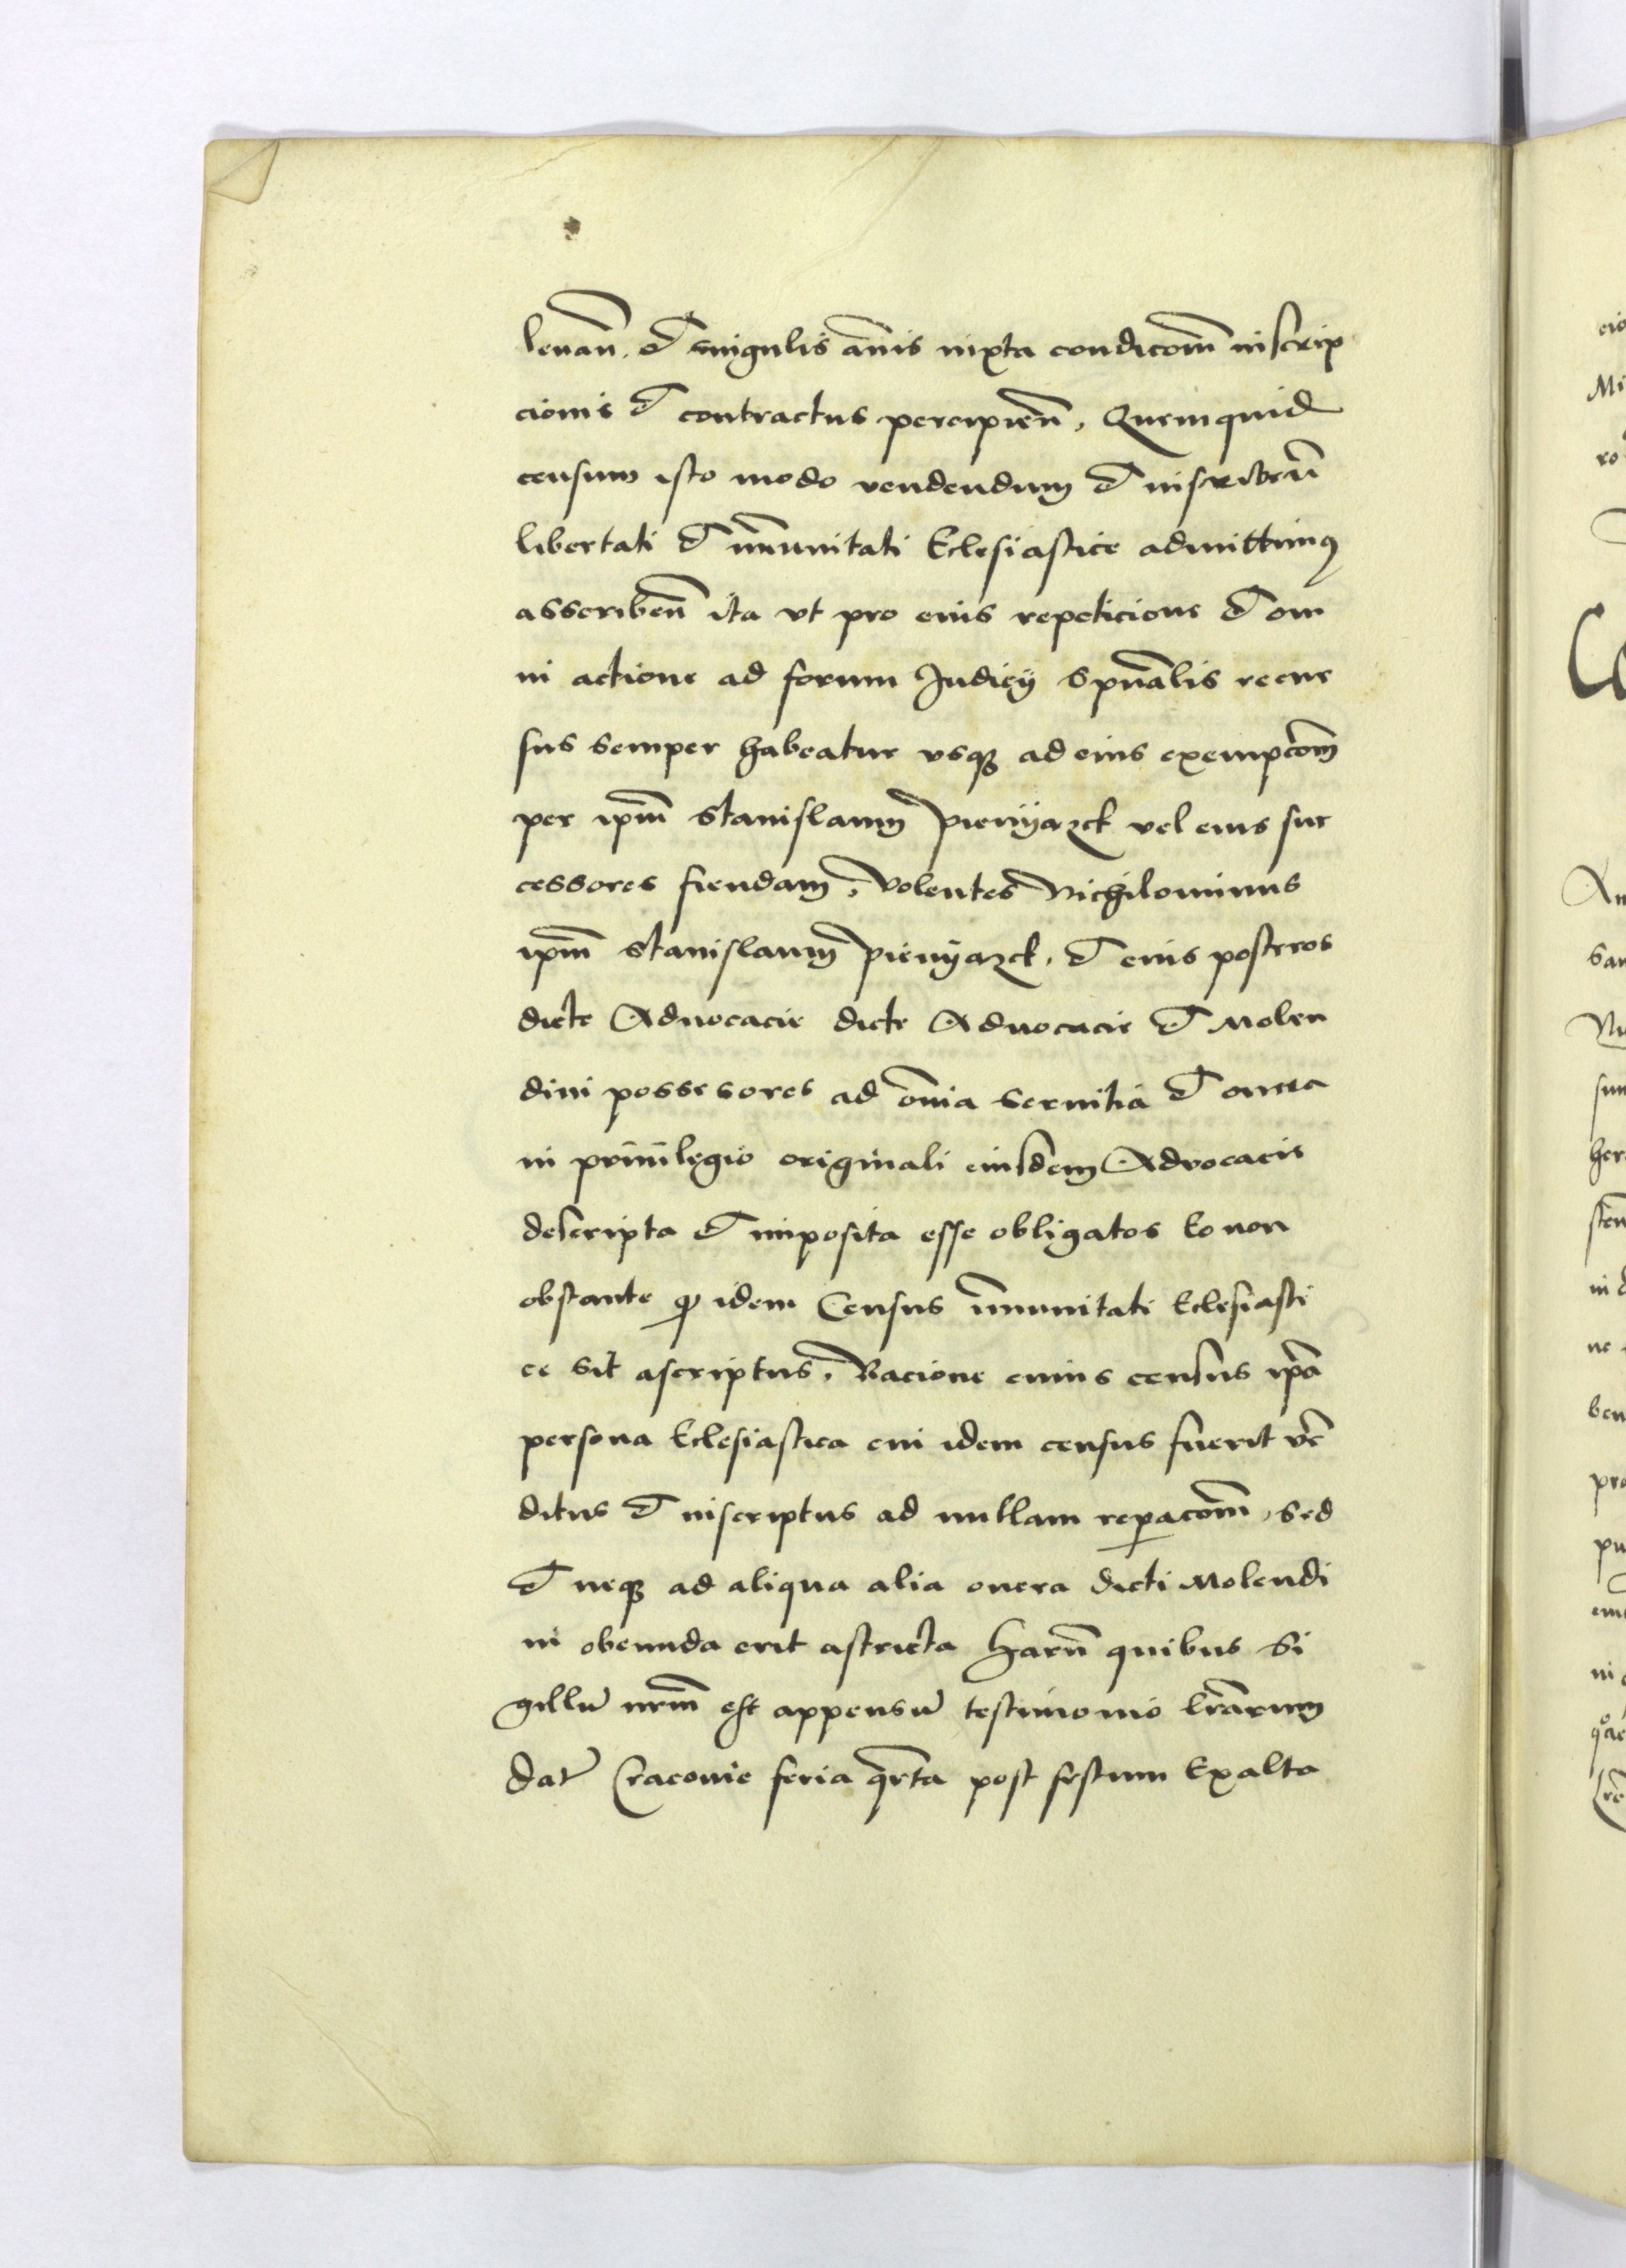 levan̄. et singulis an̄is iuxta condicōm̄ inscrip
cionis et contractus percipien̄, Quemquid
censum isto modo vendendum et inscriben̄
libertati et im̄unitati Eclesiastice admittimꝰ
asscriben̄ ita vt pro eius repeticione et om
ni actione ad forum Judicÿ spūalis recur
sus semper habeatur vsqꝫ ad eius exempcōm̄
per ip̄m̄ Stanislaum pienÿazek vel eius suc
cessores fiendam, volentes Nichilominus
ip̄m̄ Stanislaum pienÿazek, et eius posteros
dicte Aduocacie dicte Aduocacie et Molen
dini possessores ad om̄ia seruitia et onera
in priuilegio originali eiusdem Advocacie
descripta et imposita esse obligatos Eo non
obstante ꝙ idem Census im̄unitati Eclesiasti
ce sit ascriptus, Racione cuius census ip̄a
persona Eclesiastica cui idem census fuerit vē
ditus et inscriptus ad nullam reꝑacōm̄, sed
et neqꝫ ad aliqua alia onera dicti Molendi
ni obeunda erit astricta Harū quibus Si
gillū nr̄m̄ est appensū testimonio Lr̄arum
Dat̄ Cracovie feria qr̄ta post festum Exalta